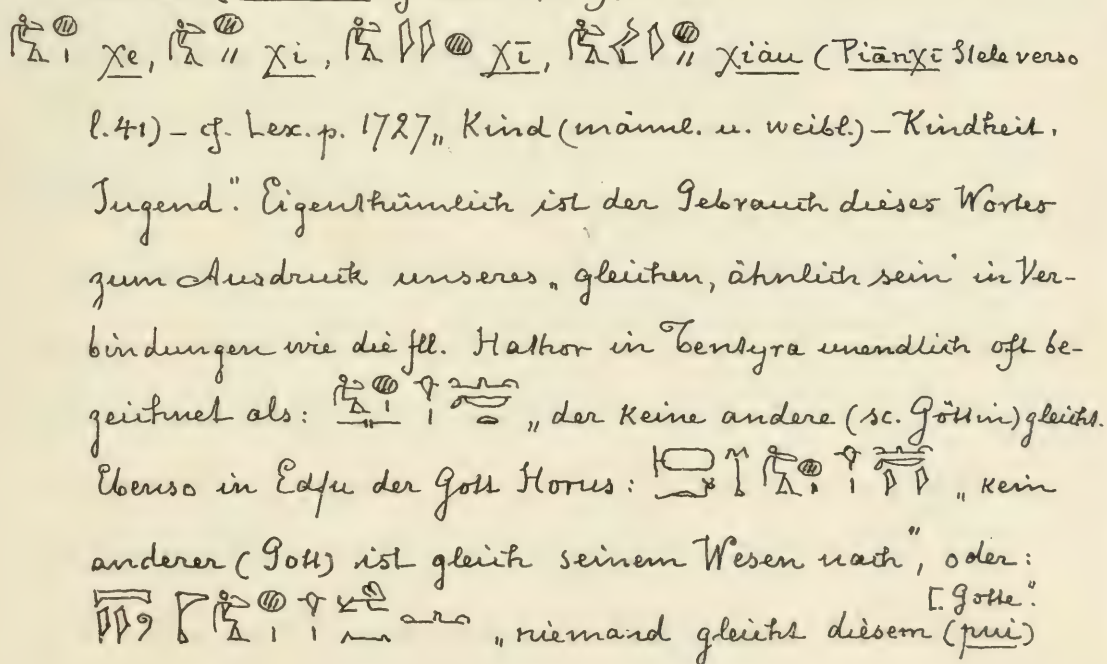 χe, χi, χī, χiàu (Piānχī Stele verso
l. 41) – cf. Lex. p. 1727 „Kind (männl. u. weibl.) – Kindheit,
Jugend“. Eigenthümlich ist der Gebrauch dieses Wortes
zum Ausdruck unseres „gleichen, ähnlich sein“ in Ver-
bindungen wie die fll. Hathor in Tentyra unendlich oft be-
zeichnet als: „der keine andere (sc. Göttin) gleicht.
Ebenso in Edfu der Gott Horus: „kein
anderer (Gott) ist gleich seinem Wesen nach“, oder:
[Gotte“.
„niemand gleicht diesem (pui)